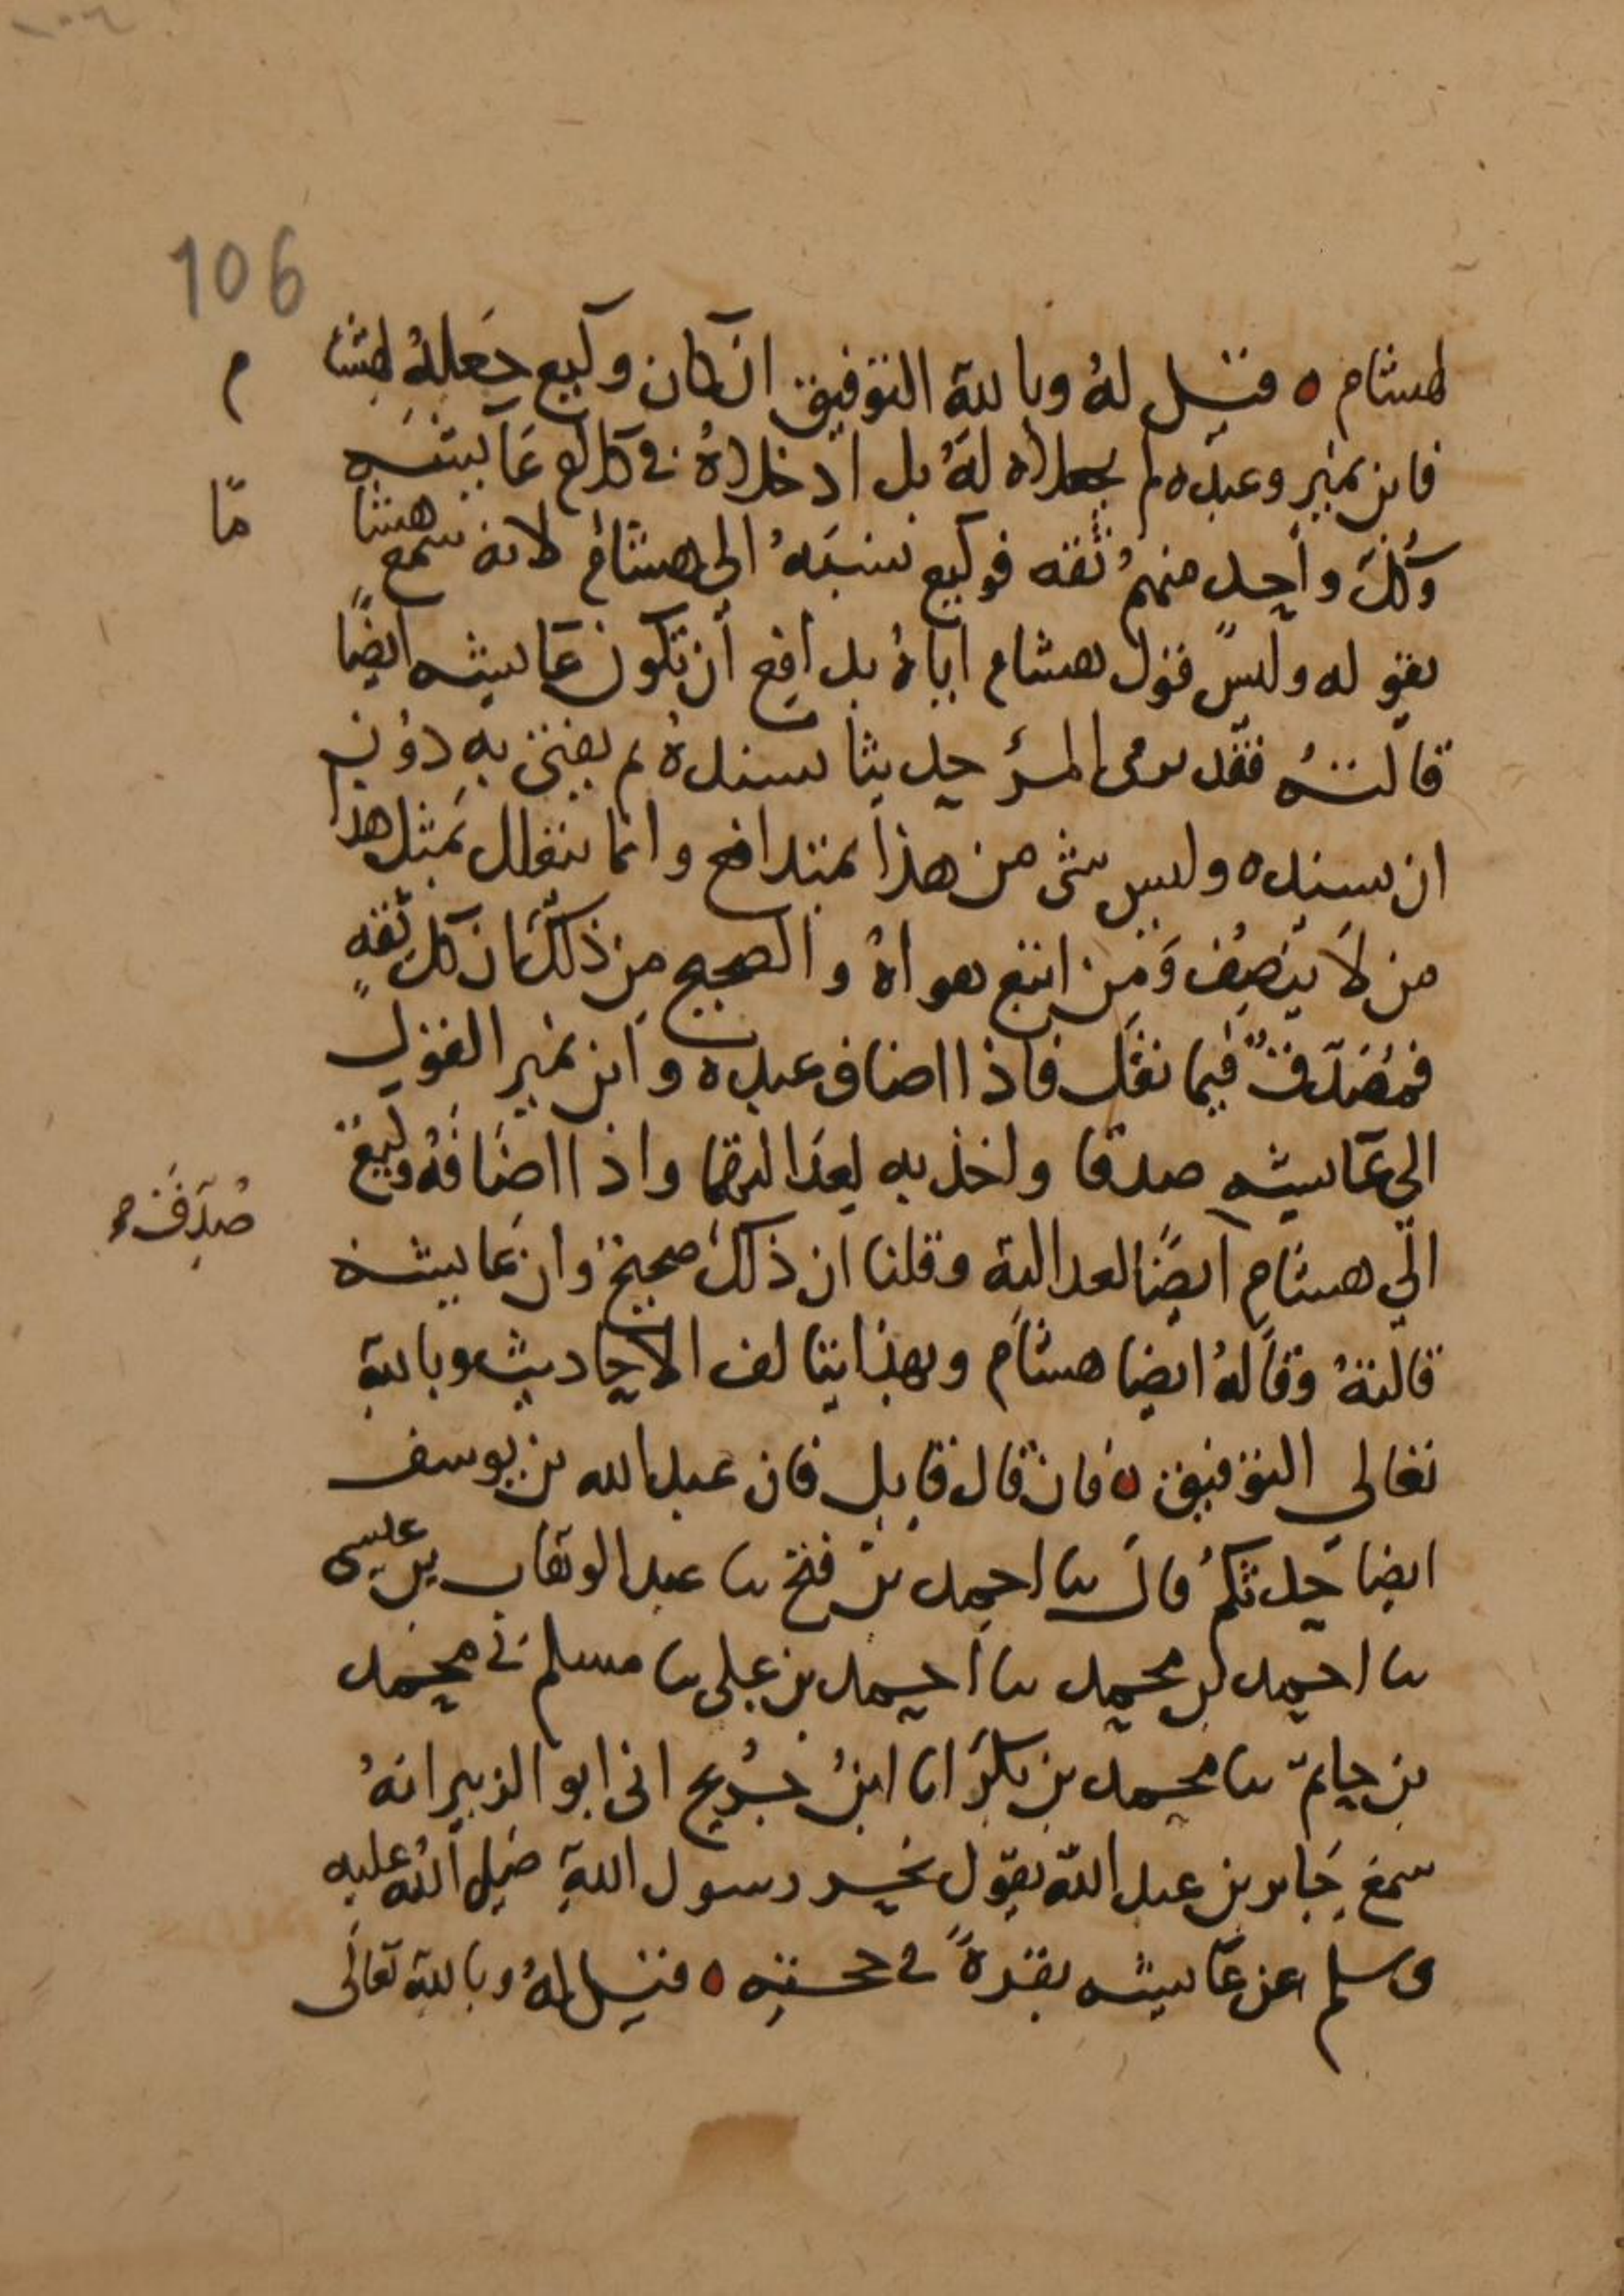 106
لهشام ه فقيل لهُ وبالله التوفيق ان كان وكيع جَعلهُ لهشا م
فابن نمير وعبده لم يجعلاه لهُ بل ادخلاهُ في كلام عَايشه
وَكلّ واحِد منهمُ ثقه فوكيع نسبَهُ الى هشام لانه سمع هشا مّا
يقو له وليسَ قول هشام اياهُ بدافِع أن تكون عَايشه ايضًا
قالتهُ فقد يروى المرؤ حديثا يسندهُ ثم يفتى بهِ دوُن
ان يسنده وليس شى من هذا بمتدافع وانما يتعلل بمثل هذا
من لاَ ينصِفُ وَمِن اتبع هواهُ والصحيح مِن ذلكَ ان كل ثقهٍ
فمُصَدّقٌ فيما نقَل فاذا اضاف عبده وابن نمير القول
الى عَايشه صدقا واخذ به لعَدالتهما واذا اضَافهُ وكيع
الي هشام ايضًا لعدالته وقلنا ان ذلكَ صحيح وان عَايشه
صُدِّقَ
قالتهُ وقالهُ ايضا هشام وبهذا يتالف الاحاديث وبالله
تعالى التوفيق ه فان قال قايل فان عبدالله بن يوسف
ايضا حَدثكمُ قال نا احمد بن فتح نا عبد الوهاب بن عيسى
نا احمد بن محمد نا احمد بن علي نا مسلم ني محمد
بن حاتم نا محمد بن بكرَ انا ابنُ جُريج اني ابو الزبير انهُ
سمعَ جَابر بن عبد اللهّ يقول نحر رسول اللهِ صَلى اللهُ عليه
وسلم عن عَايشه بقرةً في حجته ه فقيل لهُ وبالله تعَالَى